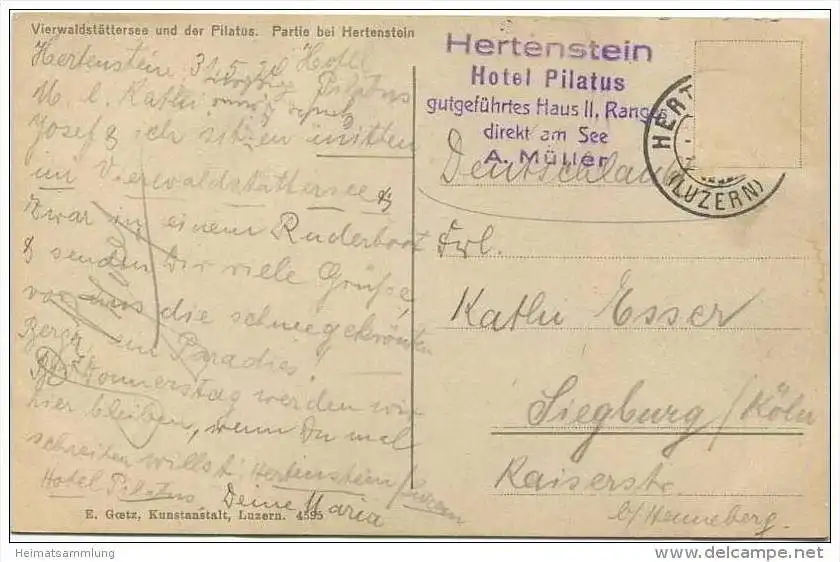 Vierwaldstättersee und der Pilatus. Partie bei Hertenstein
Hertenstein 31.5.30 Hotel
Pilatus
M. l. Kathi
Josef & ich sitzen mitten
im Vierwaldstättersee &
zwar in einem Ruderboot
& senden Dir viele Grüße,
vor uns die schneegekrönten
Berge, ein Paradies!
Bis Donnerstag werden wir
hier bleiben, wenn Du mal
schreiben willst: Hertenstein/Luzern
Hotel Pilatus Deine Maria
E. Gœtz, Kunstanstalt, Luzern. 4595
Hertenstein
Hotel Pilatus
gutgeführtes Haus II. Ranges
direkt am See
A. Müller
Deutschland
HERT
(LUZERN)
Frl.
Kathi Esser
Siegburg/Köln
Kaiserstr.
b/Henneberg.
Heimatsammlung
www.delcampe.net